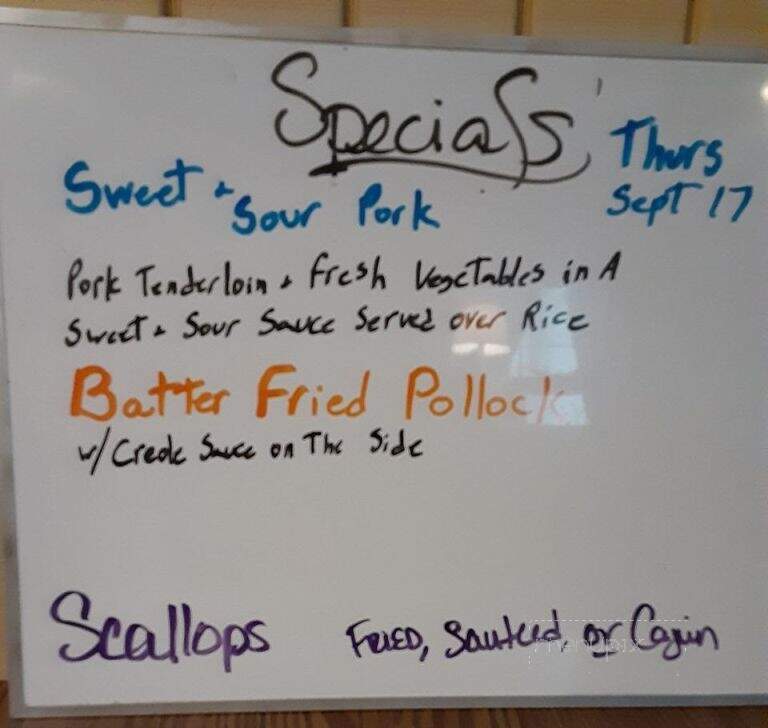 Specials
Thurs
Sept 17
Sweet +
Sour Pork
Pork Tenderloin + Fresh Vegetables in A
Sweet + Sour Sauce Served over Rice
Batter Fried Pollock
w/ Creole Sauce on The Side
Scallops Fried, Sauteed, or Cajun
menupix